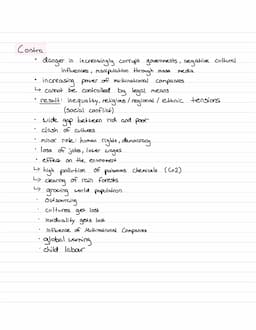 Contra
• danger in increasingly corrupt governments, negative cultural
influences, manipulation through mass media
• increasing power of multinational companies
↳ cannot be controlled by legal means
• result: inequality, religious / regional / ethnic tensions
(social conflict)
• wide gap between rich and poor
• clash of cultures
• minor role: human rights, democracy
• loss of jobs, lower wages
• effect on the environment
↳ high pollution of poisonous chemicals (Co2)
↳ clearing of rain forests
↳ growing world population
• outsourcing
• cultures get lost
• individuality gets lost
• influence of Multinational Companies
• global warming
• child labour